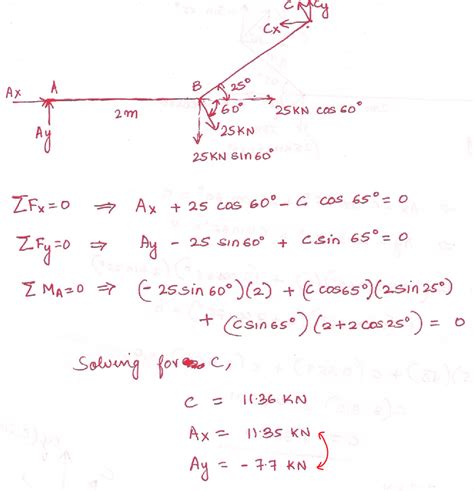 C Cy
Cx
Ax A B 25°
60°
2m 25KN cos 60°
Ay 25KN
25KN sin 60°
ΣFx=0 ⇒ Ax + 25 cos 60° - C cos 65° = 0
ΣFy=0 ⇒ Ay - 25 sin 60° + C sin 65° = 0
ΣMA=0 ⇒ (-25 sin 60°)(2) + (C cos 65°)(2 sin 25°)
+ (C sin 65°)(2+2 cos 25°) = 0
Solving for C,
C = 11.36 KN
Ax = 11.35 KN
Ay = -7.7 KN